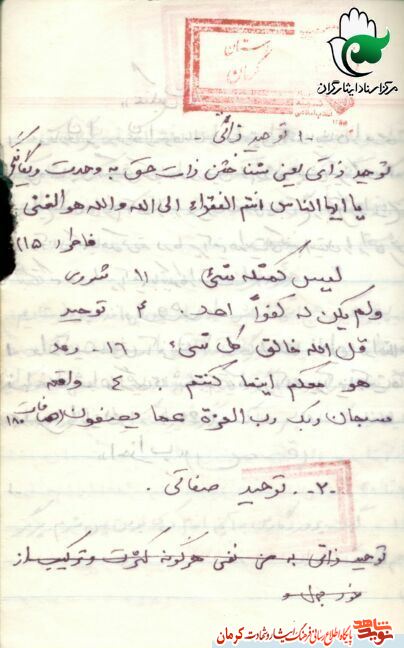 مرکز اسناد ایثارگران
استان
کرمان
۱۰ توحید ذاتی
توحید ذاتی یعنی شناختن ذات حق به وحدت و یگانگی
یا ایها الناس انتم الفقراء الی الله والله هو الغنی
فاطر (۱۵)
لیس کمثله شیئ ۱۱ شوری
ولم یکن له کفواً احد ۴ توحید
قل الله خالق کل شیء ۱۶- رعد
هو معکم اینما کنتم ۴ واقعه
سبحان ربک رب العزة عما یصفون (صافات ۱۸۰
۲۰۰ توحید صفاتی.
توحید ذاتی به معنی نفی هرگونه کثرت و ترکیب از
خود
نوید شاهد پایگاه اطلاع رسانی فرهنگ ایثار و شهادت کرمان